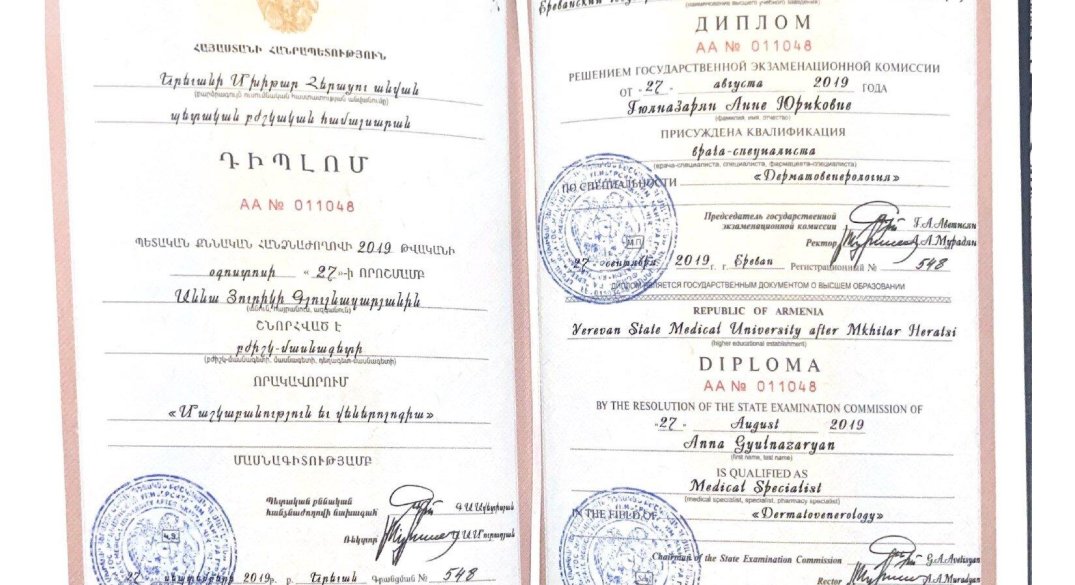 ՀԱՅԱՍՏԱՆԻ ՀԱՆՐԱՊԵՏՈՒԹՅՈՒՆ
Երևանի Մխիթար Հերացու անվան
(բարձրագույն ուսումնական հաստատության անվանումը)
պետական բժշկական համալսարան
ԴԻՊԼՈՄ
АА № 011048
ՊԵՏԱԿԱՆ ՔՆՆԱԿԱՆ ՀԱՆՁՆԱԺՈՂՈՎԻ 2019 ԹՎԱԿԱՆԻ
օգոստոսի «27»-Ի ՈՐՈՇՄԱՄԲ
Աննա Յուրիկի Գյուլնազարյանին
(անուն, հայրանուն, ազգանուն)
ՇՆՈՐՀՎԱԾ Է
բժիշկ-մասնագետի
(բժիշկ-մասնագետի, մասնագետի, դեղագետ-մասնագետի)
ՈՐԱԿԱՎՈՐՈՒՄ
«Մաշկաբանություն եւ վեներոլոգիա»
ՄԱՍՆԱԳԻՏՈՒԹՅԱՄԲ
Պետական քննական
հանձնաժողովի նախագահ Գ.Ա.Ավետիսյան
Ռեկտոր Ա.Ա.Մուրադյան
27 սեպտեմբեր 2019թ. ք. Երևան Գրանցման № 548
Ереванский
(наименование высшего учебного заведения)
ДИПЛОМ
АА № 011048
РЕШЕНИЕМ ГОСУДАРСТВЕННОЙ ЭКЗАМЕНАЦИОННОЙ КОМИССИИ
ОТ -27- августа 2019 ГОДА
Гюлназарян Анне Юриковне
(фамилия, имя, отчество)
ПРИСУЖДЕНА КВАЛИФИКАЦИЯ
врача-специалиста
(врача-специалиста, специалиста, фармацевта-специалиста)
ПО СПЕЦИАЛЬНОСТИ «Дерматовенерология»
Председатель государственной
экзаменационной комиссии Г.А.Аветисян
Ректор А.А.Мурадян
М.П.
27 сентября 2019 г. г. Ереван Регистрационный № 548
ДИПЛОМ ЯВЛЯЕТСЯ ГОСУДАРСТВЕННЫМ ДОКУМЕНТОМ О ВЫСШЕМ ОБРАЗОВАНИИ
REPUBLIC OF ARMENIA
Yerevan State Medical University after Mkhitar Heratsi
(higher educational establishment)
DIPLOMA
АА № 011048
BY THE RESOLUTION OF THE STATE EXAMINATION COMMISSION OF
-27- August 2019
Anna Gyulnazaryan
(first name, last name)
IS QUALIFIED AS
Medical Specialist
(medical specialist, specialist, pharmacy specialist)
IN THE FIELD OF «Dermatovenerology»
Chairman of the State Examination Commission G.A.Avetisyan
Rector A.A.Muradyan